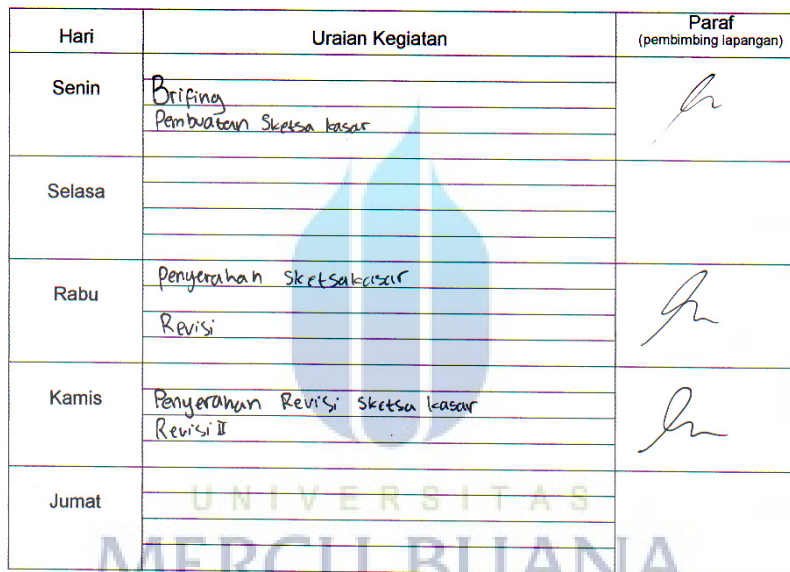 Hari
Uraian Kegiatan
Paraf
(pembimbing lapangan)
Senin
Brifing
Pembuatan Sketsa kasar
Selasa
Rabu
Penyerahan Sketsa kasar
Revisi
Kamis
Penyerahan Revisi Sketsa kasar
Revisi II
Jumat
UNIVERSITAS
MERCU BUANA